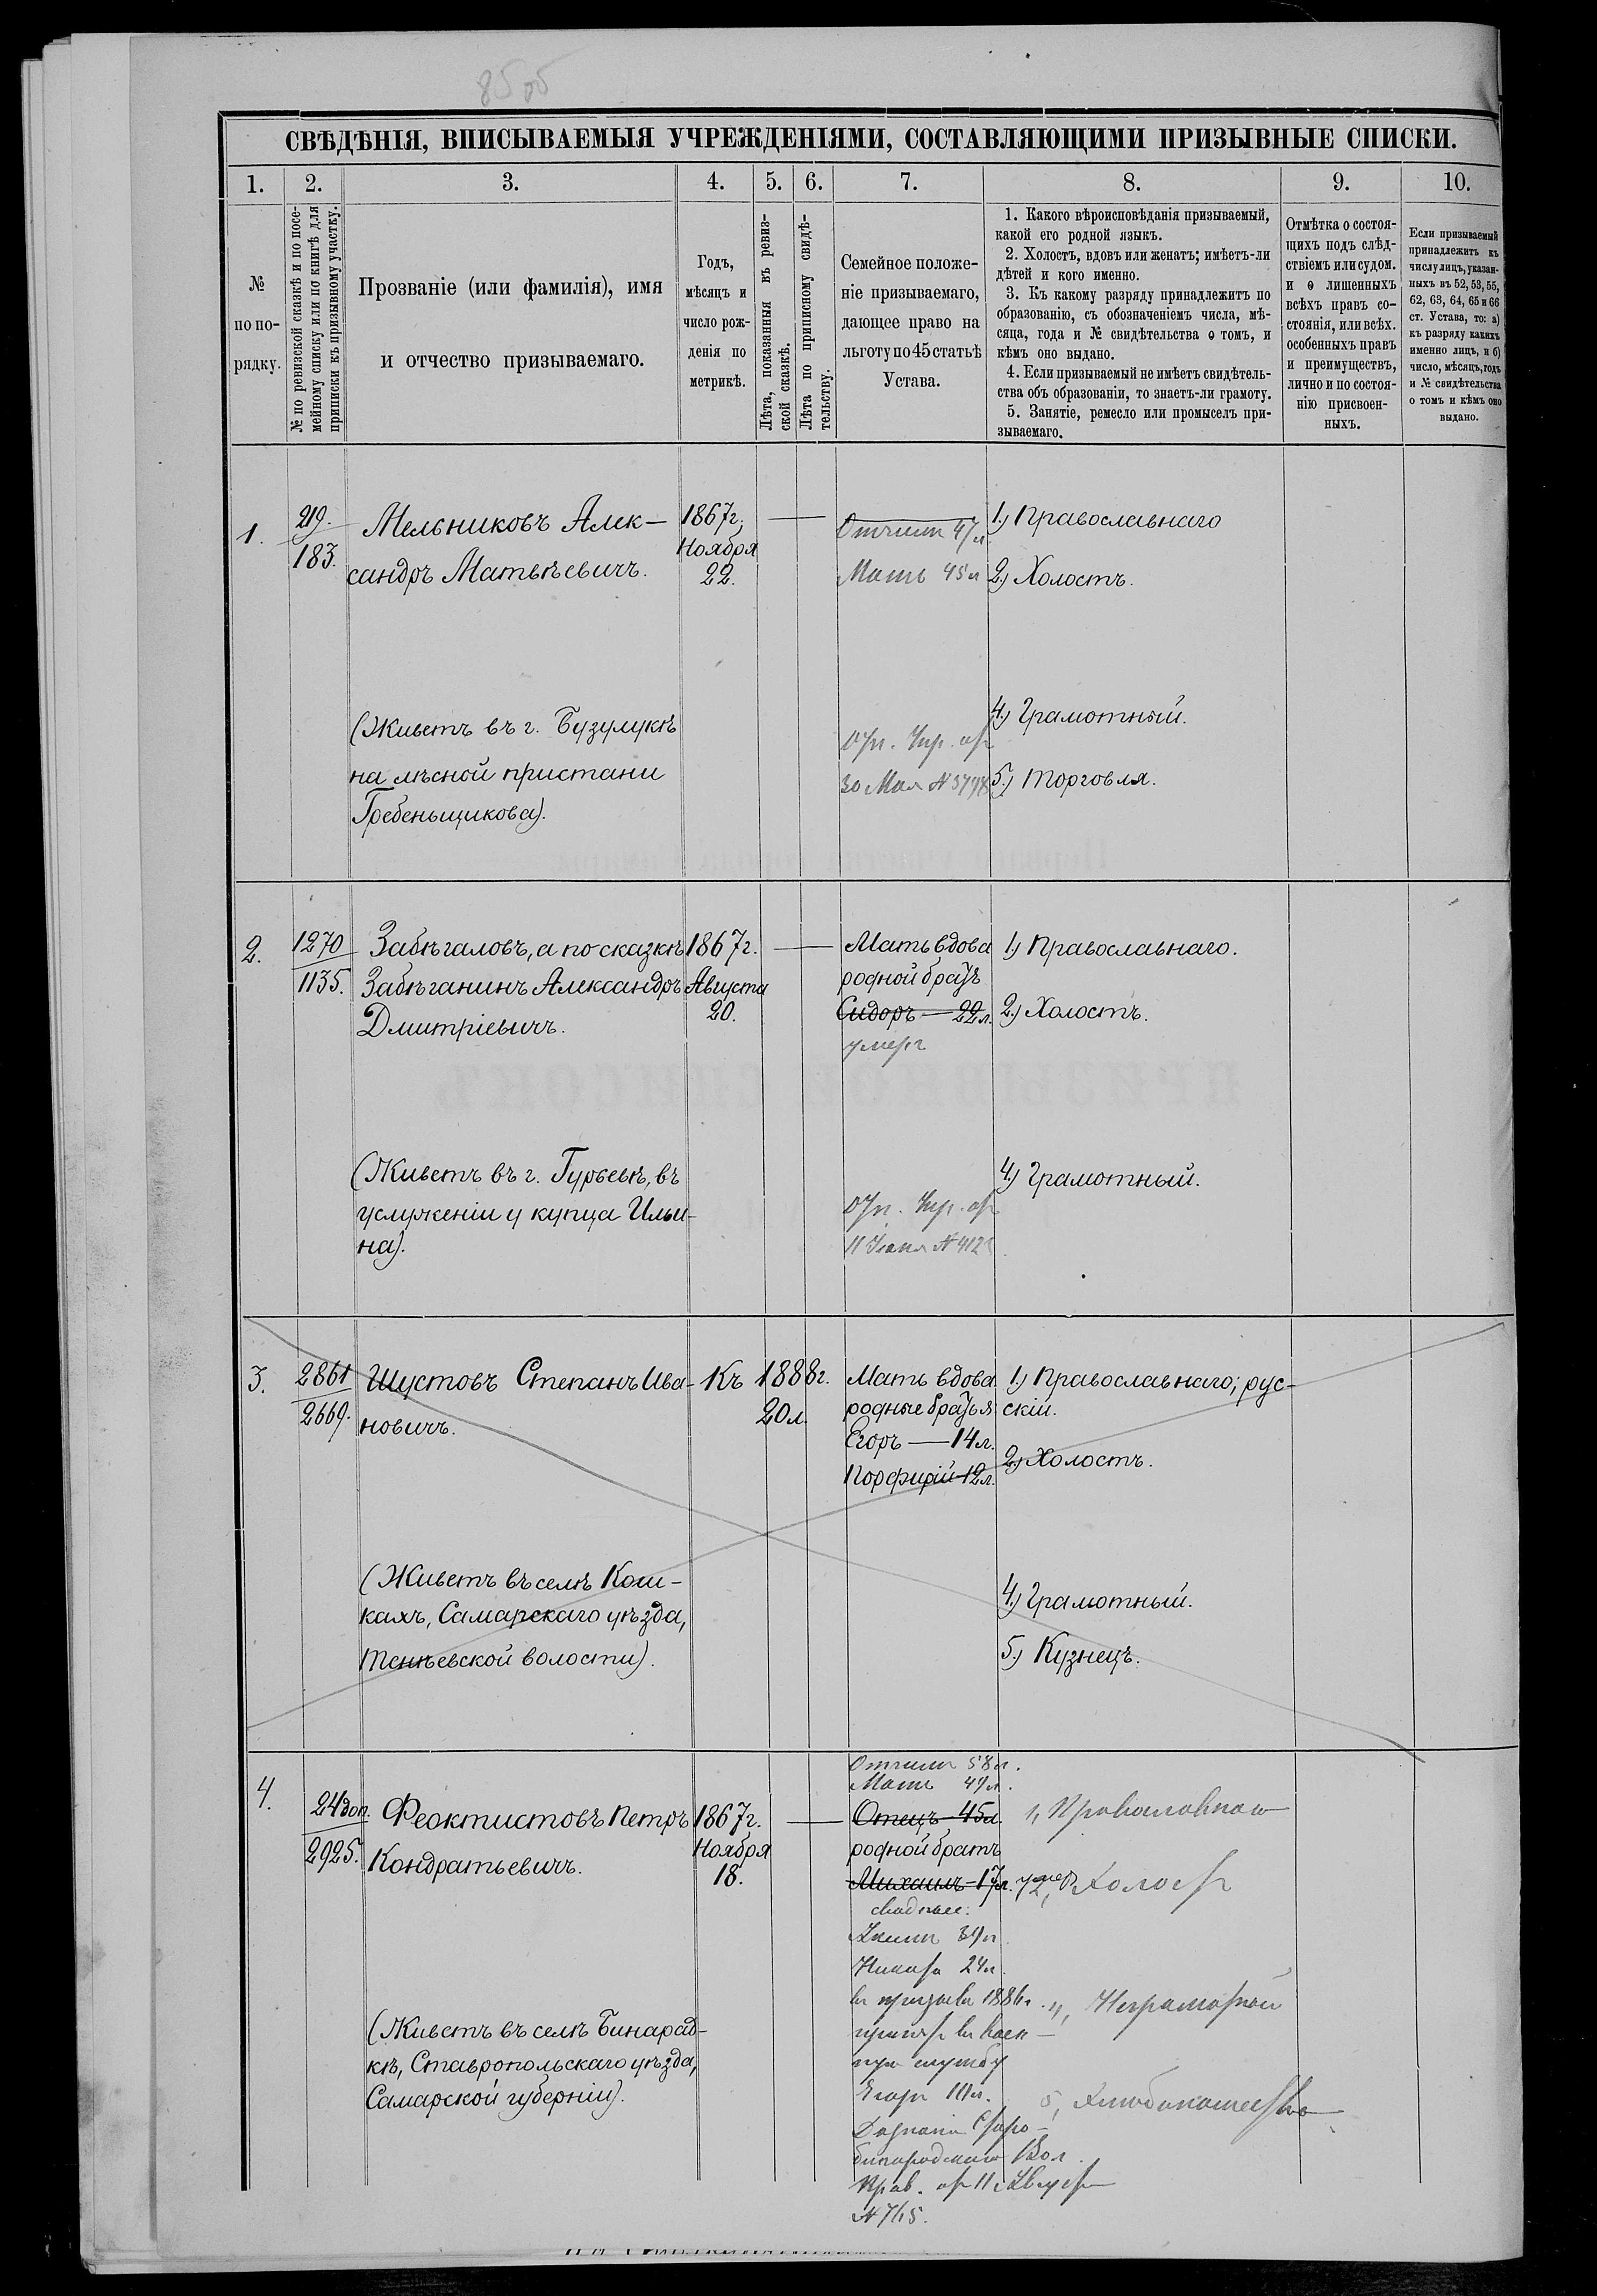 8505
СВѢДѢНІЯ, ВПИСЫВАЕМЫЯ УЧРЕЖДЕНІЯМИ, СОСТАВЛЯЮЩИМИ ПРИЗЫВНЫЕ СПИСКИ.
1.
2.
3.
4.
5.
6.
7.
8.
9.
10.
№
по по-
рядку.
№ по ревизской сказкѣ и по посе-
мейному списку или по книгѣ для
приписки къ призывному участку.
Прозваніе (или фамилія), имя
и отчество призываемаго.
Годъ,
мѣсяцъ и
число рож-
денія по
метрикѣ.
Лѣта, показанныя въ ревиз-
ской сказкѣ.
Лѣта по приписному свидѣ-
тельству.
Семейное положе-
ніе призываемаго,
дающее право на
льготу по 45 статьѣ
Устава.
1. Какого вѣроисповѣданія призываемый,
какой его родной языкъ.
2. Холостъ, вдовъ или женатъ; имѣетъ-ли
дѣтей и кого именно.
3. Къ какому разряду принадлежитъ по
образованію, съ обозначеніемъ числа, мѣ-
сяца, года и № свидѣтельства о томъ, и
кѣмъ оно выдано.
4. Если призываемый не имѣетъ свидѣтель-
ства объ образованіи, то знаетъ-ли грамоту.
5. Занятіе, ремесло или промыселъ при-
зываемаго.
Отмѣтка о состоя-
щихъ подъ слѣд-
ствіемъ или судом.
и о лишенныхъ
всѣхъ правъ со-
стоянія, или всѣх.
особенныхъ правъ
и преимуществъ,
лично и по состоя-
нію присвоен-
ныхъ.
Если призываемый
принадлежитъ къ
числу лицъ, указан-
ныхъ въ 52, 53, 55,
62, 63, 64, 65 и 66
ст. Устава, то: а)
къ разряду какихъ
именно лицъ, и б)
число, мѣсяцъ, годъ
и № свидѣтельства
о томъ и кѣмъ оно
выдано.
1.
219.
183.
Мельниковъ Алек-
сандръ Матвѣевичъ.
(Живетъ въ г. Бузулукѣ
на лѣсной пристани
Гребеньщикова).
1867г.
Ноября
22.
Отчим 47 л
Мать 45 л
30 Мая №
1.) Православнаго
2.) Холостъ.
4.) Грамотный.
5.) Торговля.
2.
1270
1135.
Забѣгаловъ, а по сказкѣ
Забѣганинъ Александръ
Дмитріевичъ.
(Живетъ въ г. Гурьевѣ, въ
услуженіи у купца Ильи-
на).
1867г.
Августа
20.
Мать вдова
родной братъ
Сидоръ — 22л.
умеръ
11 Іюня №
1.) Православнаго.
2.) Холостъ.
4.) Грамотный.
3.
2861
2669.
Шустовъ Степанъ Ива-
новичъ.
(Живетъ въ селѣ Кош-
кахъ, Самарскаго уѣзда,
Тенѣевской волости).
Къ 1888г.
20л.
Мать вдова
родные братья
Егоръ — 14л.
Порфирій 12л.
1.) Православнаго; рус-
скій.
2.) Холостъ.
4.) Грамотный.
5.) Кузнецъ.
4.
24 доп.
2925.
Феоктистовъ Петръ
Кондратьевичъ.
(Живетъ въ селѣ Бинарад-
кѣ, Ставропольскаго уѣзда,
Самарской губерніи).
1867г.
Ноября
18.
Отчим 58 л.
Мать 49 л.
Отецъ — 45л
родной братъ
Михаилъ — 17л. умер
сводные:
Аким
Никита 24 л.
в призыв 1886г.
принят в воен-
ную службу
Егор
Дознание Старо-
бинарадскаго Вол.
Прав. от 11 Август
№ 765.
1, Православнаго
2, Холост
4, Неграмотной
5, Хлебопашество